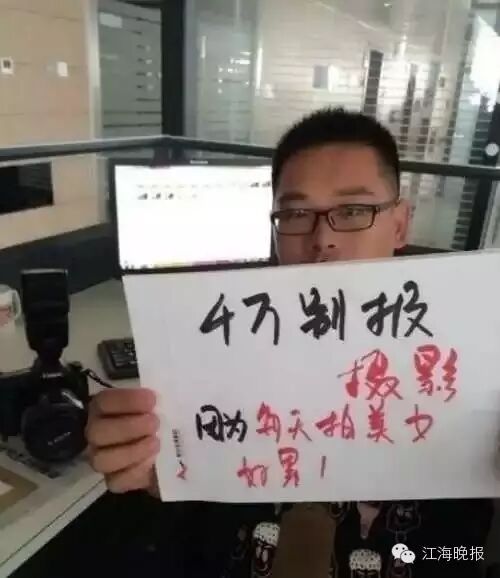 4万别报
摄影
因为每天拍美女
好累！
江海晚报